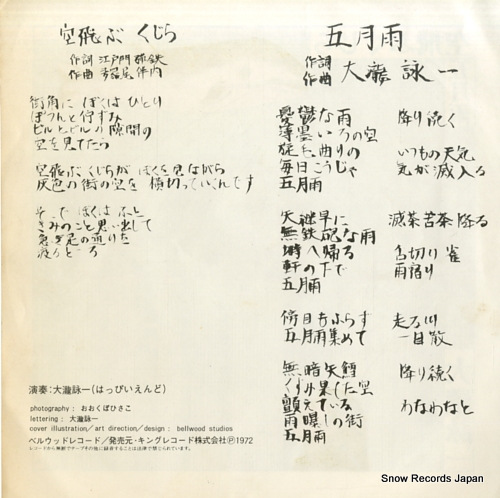 空飛ぶ くじら
作詞 江戸門 弾鉄
作曲 多羅尾 伴内
街角に ぼくは ひとり
ぽつんと 佇ずみ
ビルとビルの 隙間の
空を 見てたら
空飛ぶ くじらが ぼくを 見ながら
灰色の 街の空を 横切っていくんです
そこで ぼくは ふと
きみのこと 思い出して
急ぎ足の 通りを
五月雨
作詞
作曲 大瀧 詠一
憂鬱な雨 降り続く
薄曇いろの空
旋毛曲りの いつもの天気
毎日こうじゃ 気が滅入る
五月雨
矢継早に 滅茶苦茶 降る
無鉄砲な雨
塒へ帰る 舌切り 雀
軒の下で 雨宿り
五月雨
傍目もふらず 走る川
五月雨集めて 一目散
無暗矢鱈 降り続く
くすみ果した空
顫えている わなわなと
雨曝しの街
五月雨
演奏:大瀧詠一(はっぴいえんど)
photography : おおくぼひさこ
lettering : 大瀧詠一
cover illustration/art direction/design : bellwood studios
ベルウッドレコード/発売元・キングレコード株式会社Ⓟ1972
レコードから無断でテープその他に録音することは法律で禁じられています。
Snow Records Japan